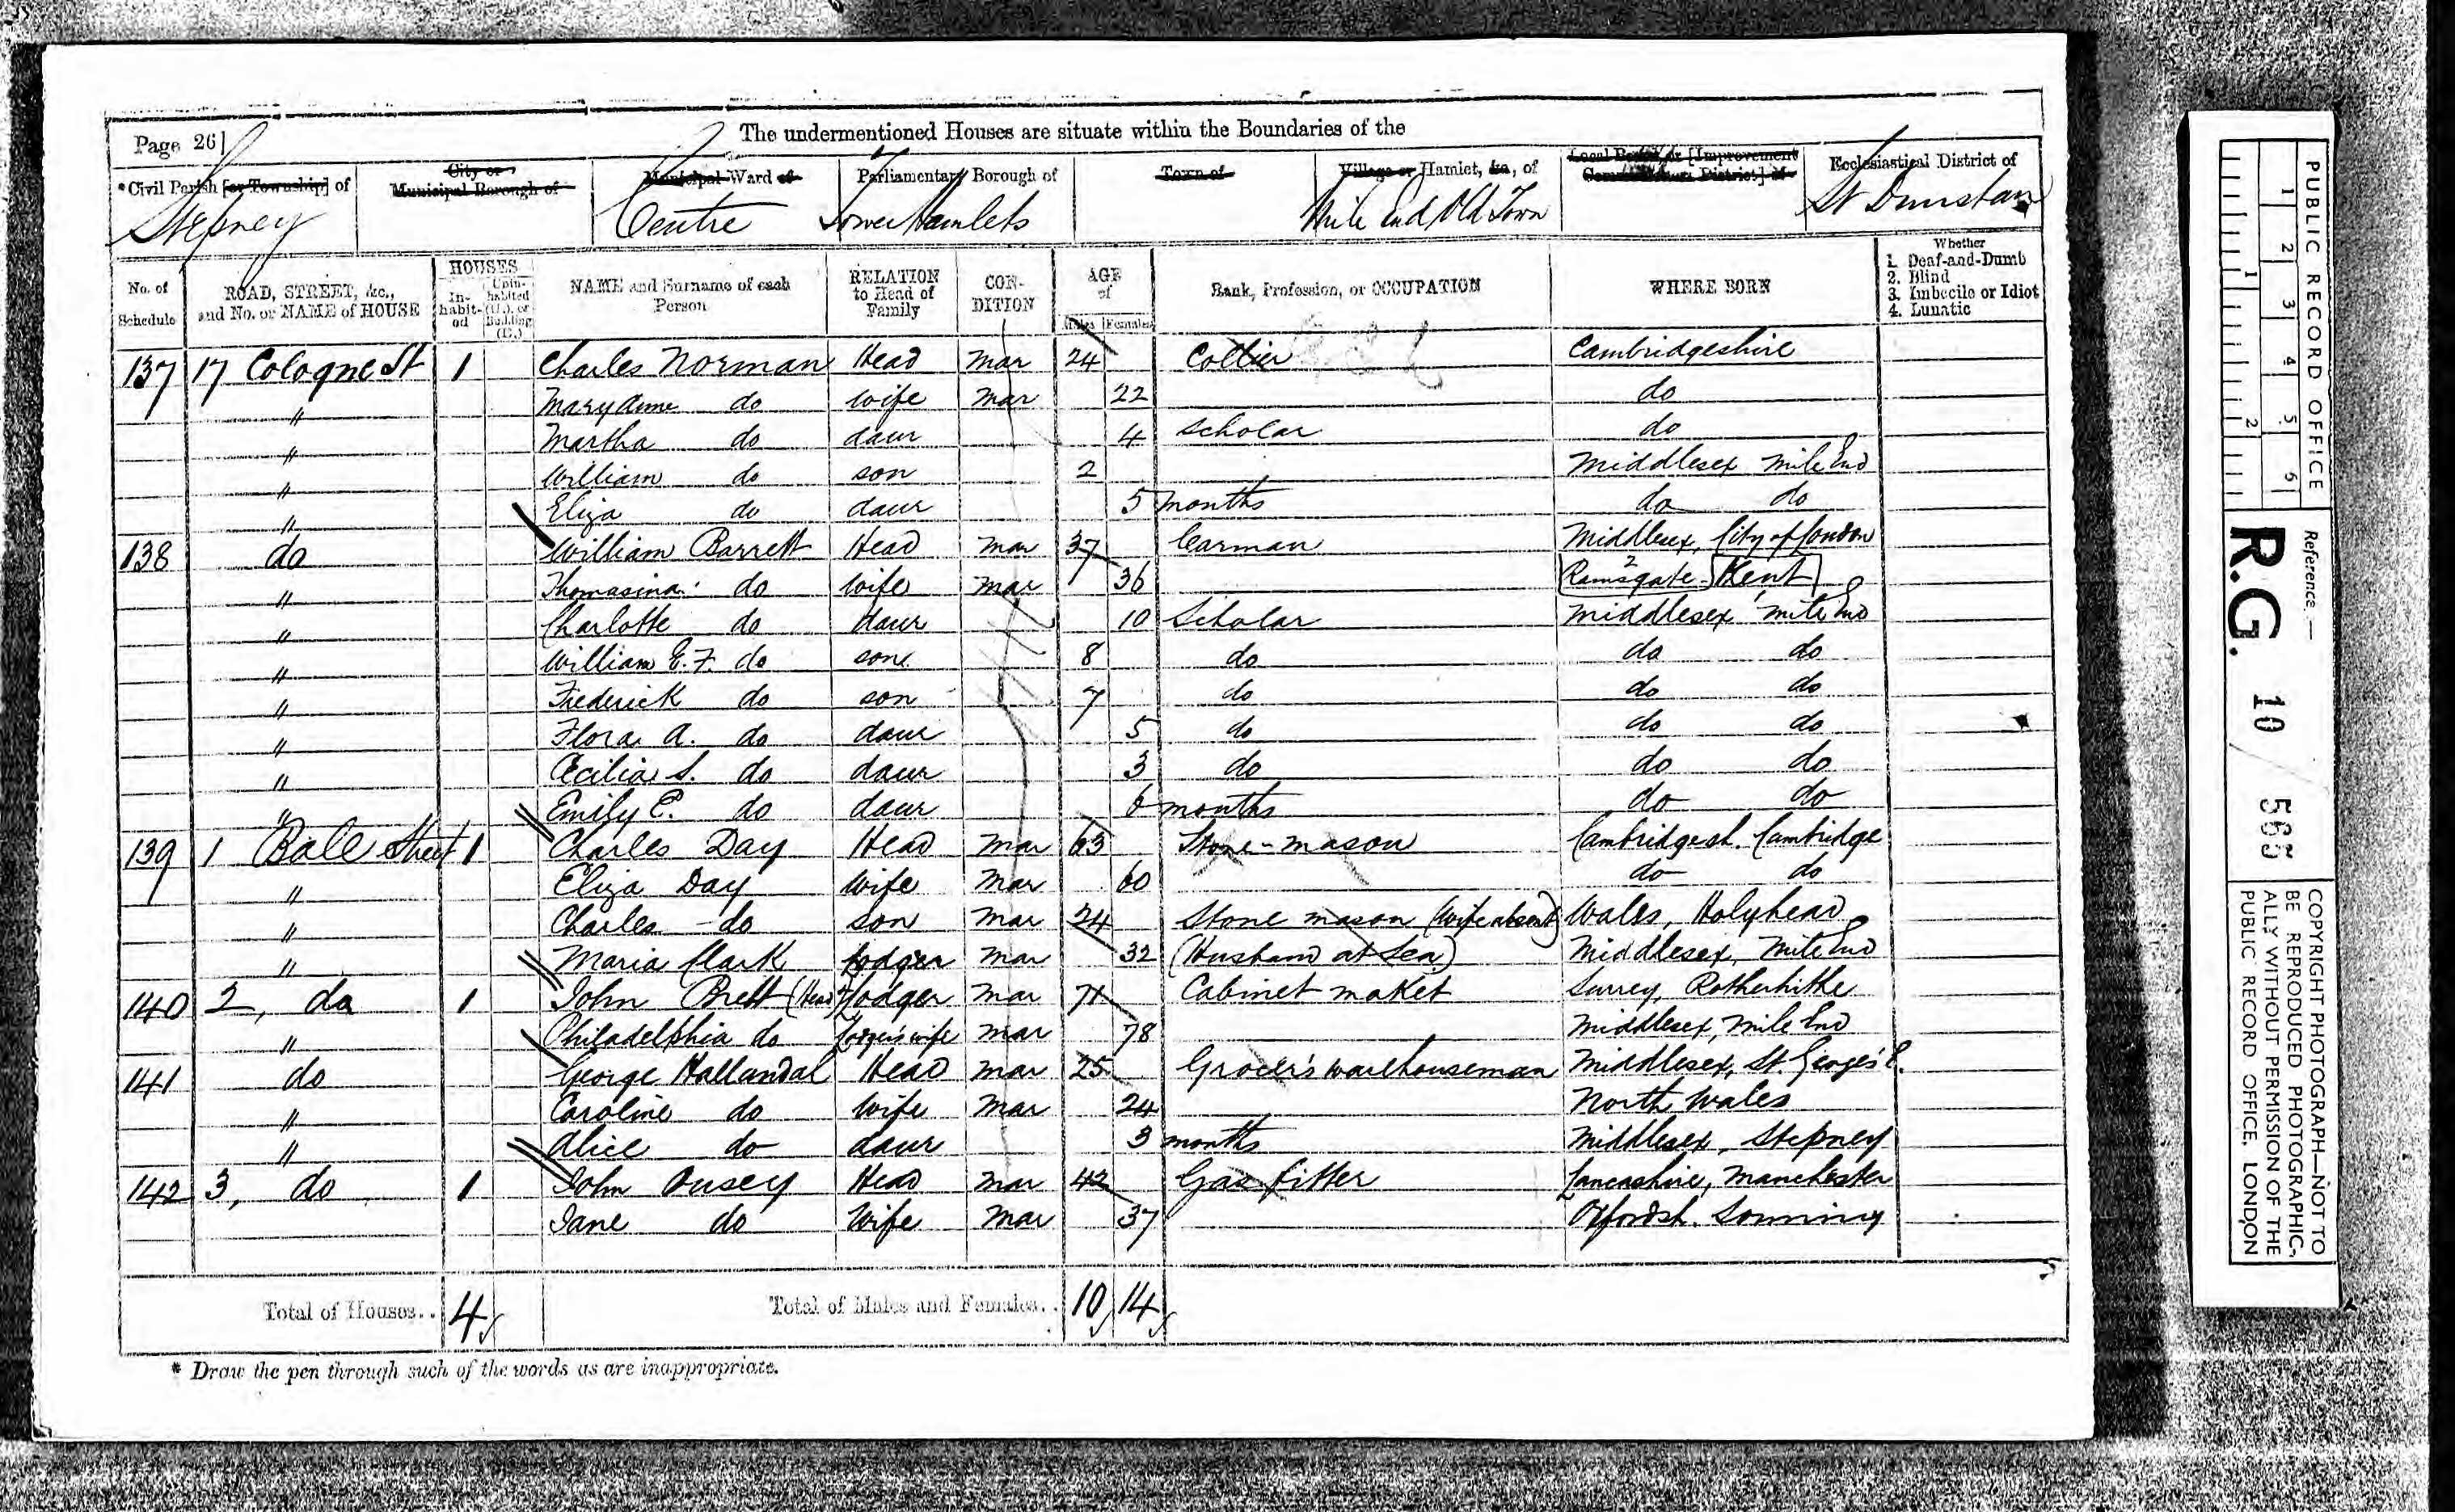 Page 26
The undermentioned Houses are situate within the Boundaries of the
*Civil Parish [or Township] of
City or Municipal Borough of
Municipal Ward of
Parliamentary Borough of
Town of
Village or Hamlet, &c., of
Local Board, or [Improvement Commissioners District] of
Ecclesiastical District of
Stepney Centre Tower Hamlets Mile End Old Town St Dunstan
No. of Schedule
ROAD, STREET, &c., and No. or NAME of HOUSE
HOUSES
In-habit-ed
Unin-habited (U.), or Building (B.)
NAME and Surname of each Person
RELATION to Head of Family
CON-DITION
AGE of
Males Females
Rank, Profession, or OCCUPATION
WHERE BORN
Whether
1. Deaf-and-Dumb
2. Blind
3. Imbecile or Idiot
4. Lunatic
137 17 Cologne St 1 Charles Norman Head Mar 24 Collier Cambridgeshire
" Mary Anne do Wife Mar 22 do
" Martha do daur 4 Scholar do
" William do son 2 Middlesex Mile End
" Eliza do daur 5 months do do
138 do William Barrett Head Mar 37 Carman Middlesex, City of London
" Thomasina do Wife Mar 36 Ramsgate Kent
" Charlotte do daur 10 Scholar Middlesex Mile End
" William E. F. do son 8 do do do
" Frederick do son 7 do do do
" Flora A. do daur 5 do do do
" Cecilia S. do daur 3 do do do
" Emily E. do daur 6 months do do
139 1 Bale Street 1 Charles Day Head Mar 63 Stone-mason Cambridgesh. Cambridge
" Eliza Day Wife Mar 60 do do
" Charles do son Mar 24 Stone mason (Wife absent) Wales, Holyhead
" Maria Clark lodger Mar 32 (Husband at Sea) Middlesex, Mile End
140 2, do 1 John Brett (Head) lodger Mar 71 Cabinet maker Surrey, Rotherhithe
" Philadelphia do lodger's wife Mar 78 Middlesex, Mile End
141 do George Hallandal Head Mar 25 Grocer's warehouseman Middlesex, St. George's E.
" Caroline do Wife Mar 24 North Wales
" Alice do daur 3 months Middlesex, Stepney
142 3, do 1 John Ousey Head Mar 42 Gas fitter Lancashire, Manchester
Jane do Wife Mar 37 Oxfordsh. Sonning
Total of Houses.. 4 Total of Males and Females.. 10 14
* Draw the pen through such of the words as are inappropriate.
PUBLIC RECORD OFFICE
1 2 3 4 5 6
1 2
Reference:—
R.G. 10
COPYRIGHT PHOTOGRAPH—NOT TO BE REPRODUCED PHOTOGRAPHIC-
ALLY WITHOUT PERMISSION OF THE
PUBLIC RECORD OFFICE, LONDON